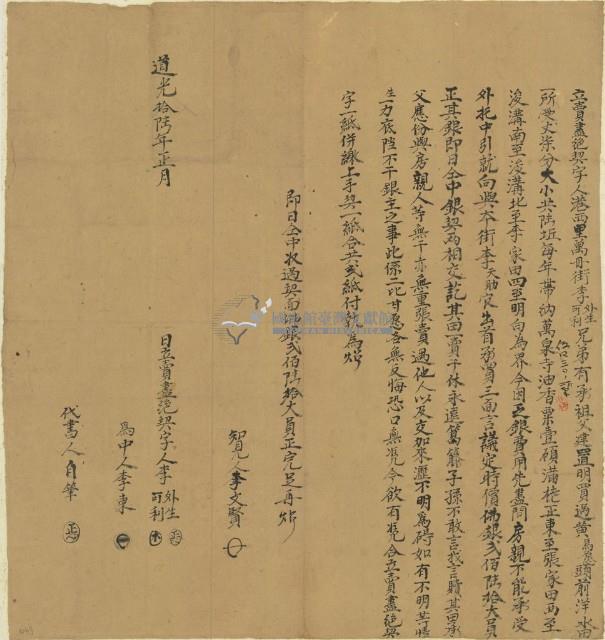 立賣盡絕契字人港西里萬丹街李外生可利兄弟有承祖父建置明買過黃為恩頭前洋水田
一所受丈柒分大小共陸坵每年帶納萬泉寺油香粟壹碩滿桄正東至張家田西至
浚溝南至浚溝北至李家田四至明向為界今因乏銀費用先盡問房親不能承受
外托中引就向與本街李天助官出首承買三面言議定時價佛銀弍佰陸拾大員
正其銀即日仝中銀契兩相交訖其田一賣千休永遠葛藤子孫不敢言找言贖其田承
父應份與房親人等無干亦無重張典賣過他人以及交加來歷不明為碍如有不明等情
生一力底陸不干銀主之事此係二比甘愿各無反悔恐口無凭今欲有凭合立賣盡絕契
字一紙併繳上手契一紙合共弍紙付執為炤
即日仝中收過契面佛銀弍佰陸拾大員正完足再炤
智見人李文賢
道光拾陸年正月 日立賣盡絕契字人李外生可利
為中人李東
代書人自筆
國史館臺灣文獻館
TAIWAN HISTORICA